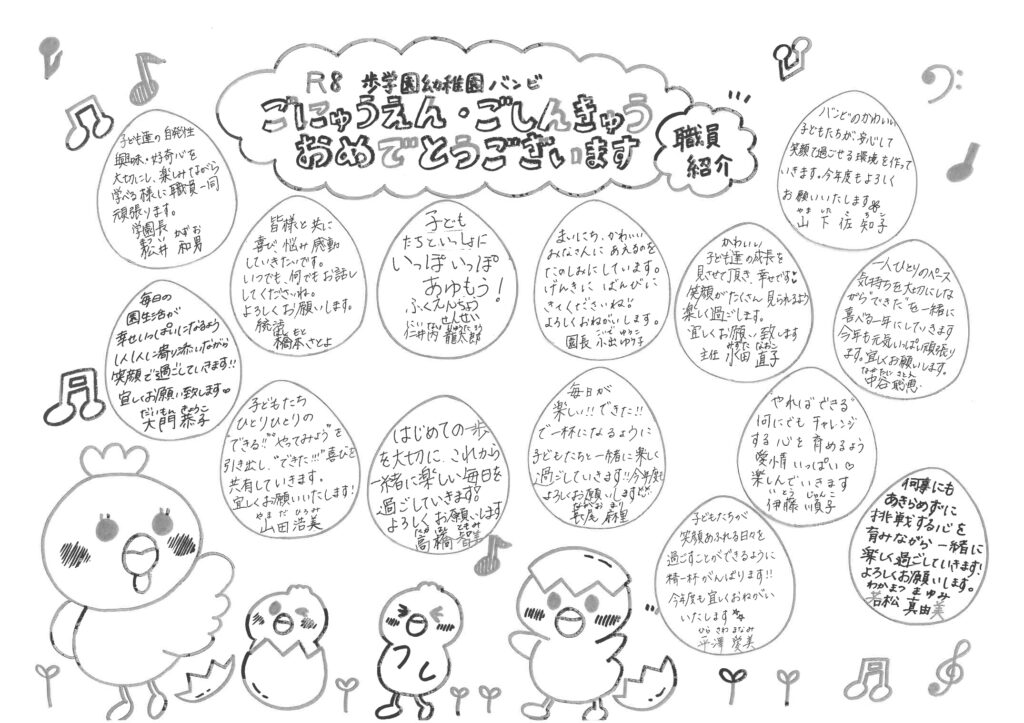 R8 歩学園幼稚園バンビ
ごにゅうえん・ごしんきゅう
おめでとうございます
職員
紹介
子ども達の自発性
興味・好奇心を
大切にし、楽しみながら
学べる様に職員一同
頑張ります。
学園長 かずお
和男
皆様と共に
喜び 悩み 感動
していきたいです。
いつでも、何でもお話し
してくださいね。
よろしくお願いします。
もと
橋本さとよ
子ども
たちといっしょに
いっぽいっぽ
あゆもう!
ふくえんちょう
せんせい
仁井内 龍太郎
まいにち、かわいい
みなさんに あえるのを
たのしみにしています。
げんきに ばんびに
きてくださいね♡
よろしくおねがいします。
こいで ゆりこ
園長 小出ゆり子
かわいい
子ども達の成長を
見させて頂き、幸せです♡
笑顔がたくさん見られるよう
楽しく過ごします。
宜しくお願い致します
なおこ
主任 永田 直子
バンビのかわいい
子どもたちが、安心して
笑顔で過ごせる環境を作って
いきます。今年度もよろしく
お願いいたします
やま した さちこ
山下 佐知子
一人ひとりのペース
気持ちを大切にしな
がら"できた"を一緒に
喜べる一年にしていきます
今年も元気いっぱい頑張り
ます。宜しくお願いします。
中谷聡恵
毎日の
園生活が
幸せいっぱいになるよう
1人1人に寄り添いながら
笑顔で過ごしていきます!!
宜しくお願い致します♡
だいもん きょうこ
大門 恭子
子どもたち
ひとりひとりの
できる!!"やってみよう"を
引き出し、"できた!!!"喜びを
共有していきます。
宜しくお願いいたします!
やまだ ひろみ
山田 浩美
はじめての一歩
を大切に、これから
一緒に楽しい毎日を
過ごしていきます。
よろしくお願いします
たかはし ともみ
高橋 智美
毎日が
楽しい!!できた!!
で一杯になるように
子どもたちと一緒に楽しく
過ごしていきます!!今年度も
よろしくお願いします!!
ながお まり
長尾 麻里
やればできる
何にでもチャレンジ
する心を 育めるよう
愛情いっぱい♡
楽しんでいきます
いとう じゅんこ
伊藤 順子
子どもたちが
笑顔あふれる日々を
過ごすことができるように
精一杯がんばります!!
今年度も宜しくおねがい
いたします
ひらさわ まなみ
平澤 愛美
何事にも
あきらめずに
挑戦する心を
育みながら一緒に
楽しく過ごしていきます!
よろしくお願いします。
わかまつ まゆみ
若松 真由美